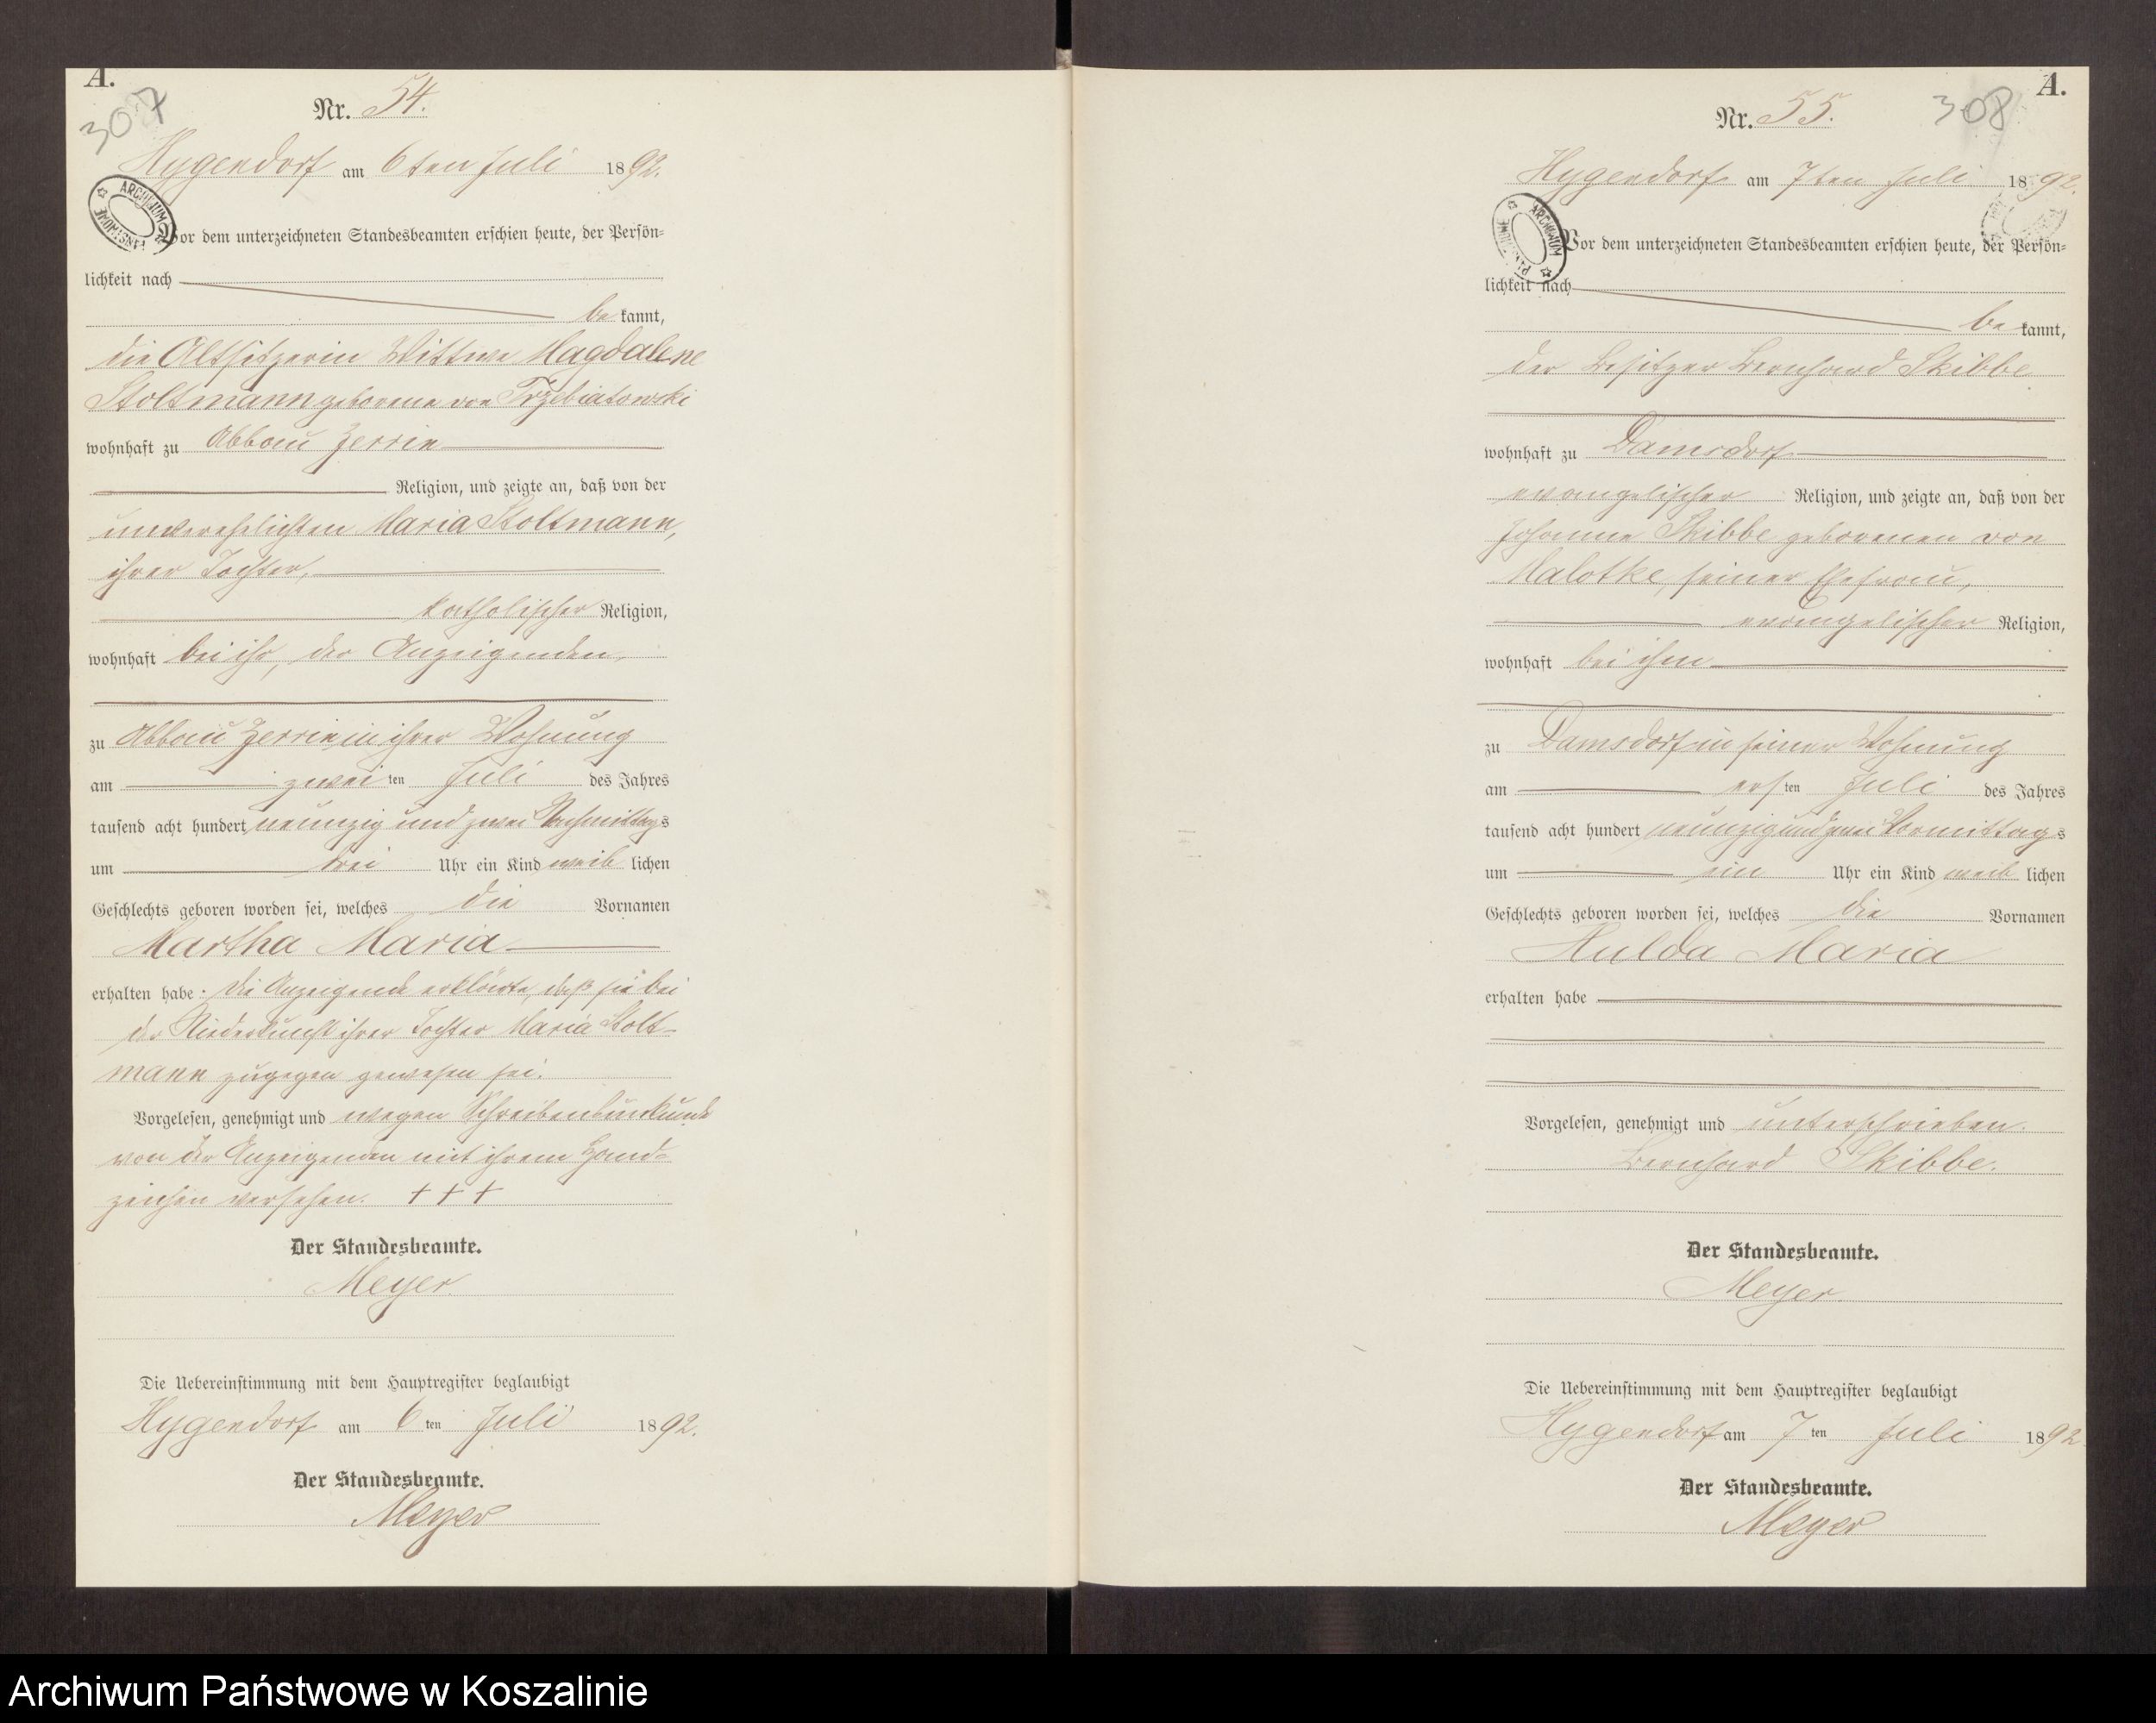 A.
307
Nr. 54.
Hygendorf am 6ten Juli 1892.
ARCHIWUM PAŃSTWOWE
Vor dem unterzeichneten Standesbeamten erschien heute, der Persön-
lichkeit nach
be kannt,
die Altsitzerin Wittwe Magdalene
Stoltmann geborene von Trzebiatowski
wohnhaft zu Abbau Zerrin
Religion, und zeigte an, daß von der
unverehelichten Maria Stoltmann,
ihrer Tochter,
katholischer Religion,
wohnhaft bei ihr, der Anzeigenden,
zu Abbau Zerrin in ihrer Wohnung
am zwei ten Juli des Jahres
tausend acht hundert neunzig und zwei Nachmittags
um drei Uhr ein Kind weib lichen
Geschlechts geboren worden sei, welches die Vornamen
Martha Maria
erhalten habe. Die Anzeigende erklärte, daß sie bei
der Niederkunft ihrer Tochter Maria Stolt-
mann zugegen gewesen sei.
Vorgelesen, genehmigt und wegen Schreibensunkunde
von der Anzeigenden mit ihrem Hand-
zeichen versehen. + + +
Der Standesbeamte.
Meyer.
Die Uebereinstimmung mit dem Hauptregister beglaubigt
Hygendorf am 6 ten Juli 1892.
Der Standesbeamte.
Meyer
A.
308
Nr. 55.
Hygendorf am 7ten Juli 1892.
ARCHIWUM PAŃSTWOWE
Vor dem unterzeichneten Standesbeamten erschien heute, der Persön-
lichkeit nach
be kannt,
der Besitzer Bernhard Skibbe
wohnhaft zu Damsdorf
evangelischer Religion, und zeigte an, daß von der
Johanne Skibbe geborenen von
Malotke, seiner Ehefrau,
evangelischer Religion,
wohnhaft bei ihm
zu Damsdorf in seiner Wohnung
am ers ten Juli des Jahres
tausend acht hundert neunzig und zwei Vormittags
um ein Uhr ein Kind weib lichen
Geschlechts geboren worden sei, welches die Vornamen
Hulda Maria
erhalten habe
Vorgelesen, genehmigt und unterschrieben.
Bernhard Skibbe.
Der Standesbeamte.
Meyer.
Die Uebereinstimmung mit dem Hauptregister beglaubigt
Hygendorf am 7 ten Juli 1892
Der Standesbeamte.
Meyer
Archiwum Państwowe w Koszalinie